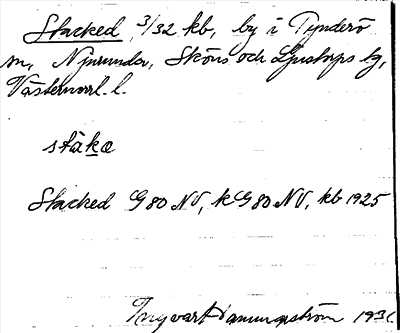 Stacked 3/32 kb, by i Tynderö
sn, Njurunda, Sköns och Ljustorps tg,
Västernorrl. l.
stàkæ
Stacked G80 NV, k G80 NV, kb 1925
Ingvart Hammarström 193